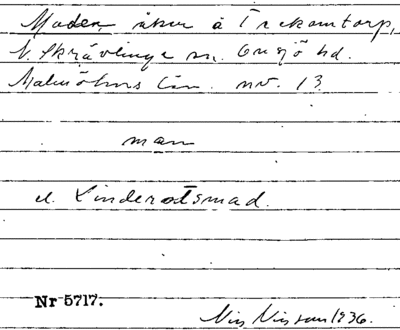 Maden, åker å Trekamtorp,
N. Skrävlinge sn. Onsjö hd.
Malmöhus län. nr. 13
man
el. Linderotsmad.
Nr 5717.
Nils Nilsson 1936.